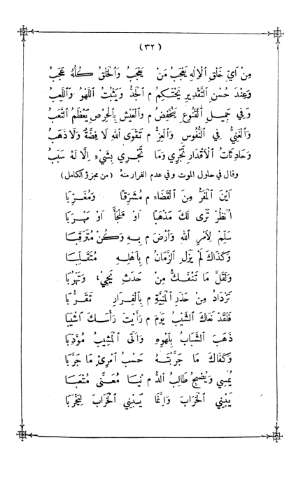 (٣٢)
مِنْ أَيِّ خَلْقِ ٱلْإِلٰهِ يَعْجَبُ مَنْ يَعْجَبُ وَٱلْخَلْقُ كُلُّهُ عَجَبُ
وَعِنْدَ حُسْنِ ٱلتَّقْدِيرِ يَخْتَكِمُ م ٱلْجَدُّ وَيَثْبُتُ ٱللَّهْوُ وَٱللَّعِبُ
وَفِي جَمِيلِ ٱلْقُنُوعِ يَخْفُضُ م وَٱلْعَيْشُ بِٱلْحِرْصِ يَعْظُمُ ٱلتَّعَبُ
وَٱلْغِنَى فِي ٱلنُّفُوسِ وَٱلْعِزُّ م تَقْوَى ٱللهِ لَا فِضَّةٌ وَلَا ذَهَبُ
وَحَادِثَاتُ ٱلْأَقْدَارِ تَجْرِي وَمَا تَجْرِي بِشَيْءٍ إِلَّا لَهُ سَبَبُ
وقال في حلول الموت وفي عدم الفرار منهُ (من مجزوء الكامل)
أَيْنَ ٱلْمَفَرُّ مِنَ ٱلْقَضَاءِ م مُشَرِّقًا وَمُغَرِّبَا
أُنْظُرْ تَرَى لَكَ مَذْهَبًا أَوْ مَلْجَأً أَوْ مَهْرَبَا
سَلِّمْ لِأَمْرِ ٱللهِ وَٱرْضَ م بِهِ وَكُنْ مُتَرَقِّبَا
وَكَذَاكَ لَمْ يَزَلِ ٱلزَّمَانُ م بِأَهْلِهِ مُتَقَلِّبَا
وَلَقَلَّ مَا تَنْفَكُّ مِنْ حَدَثٍ يَجِيءُ
تَزْدَادُ مِنْ حَذَرِ ٱلْمَنِيَّةِ م بِٱلْفِرَارِ تَقَرُّبَا
فَلَقَدْ نَعَاكَ ٱلشَّيْبُ يَوْمَ م رَأَيْتَ رَأْسَكَ أَشْيَبَا
ذَهَبَ ٱلشَّبَابُ بِلَهْوِهِ وَأَتَى ٱلْمَشِيبُ مُؤَدِّبَا
وَكَفَاكَ مَا جَرَّبْتَهُ حَسْبُ ٱمْرِئٍ مَا جَرَّبَا
يُمْسِي وَيُصْبِحُ طَالِبُ ٱلدُّ م نْيَا مُعَنًّى مُتْعَبَا
يَبْنِي ٱلْخَرَابَ وَإِنَّمَا يَبْنِي ٱلْخَرَابَ لِيَخْرَبَا